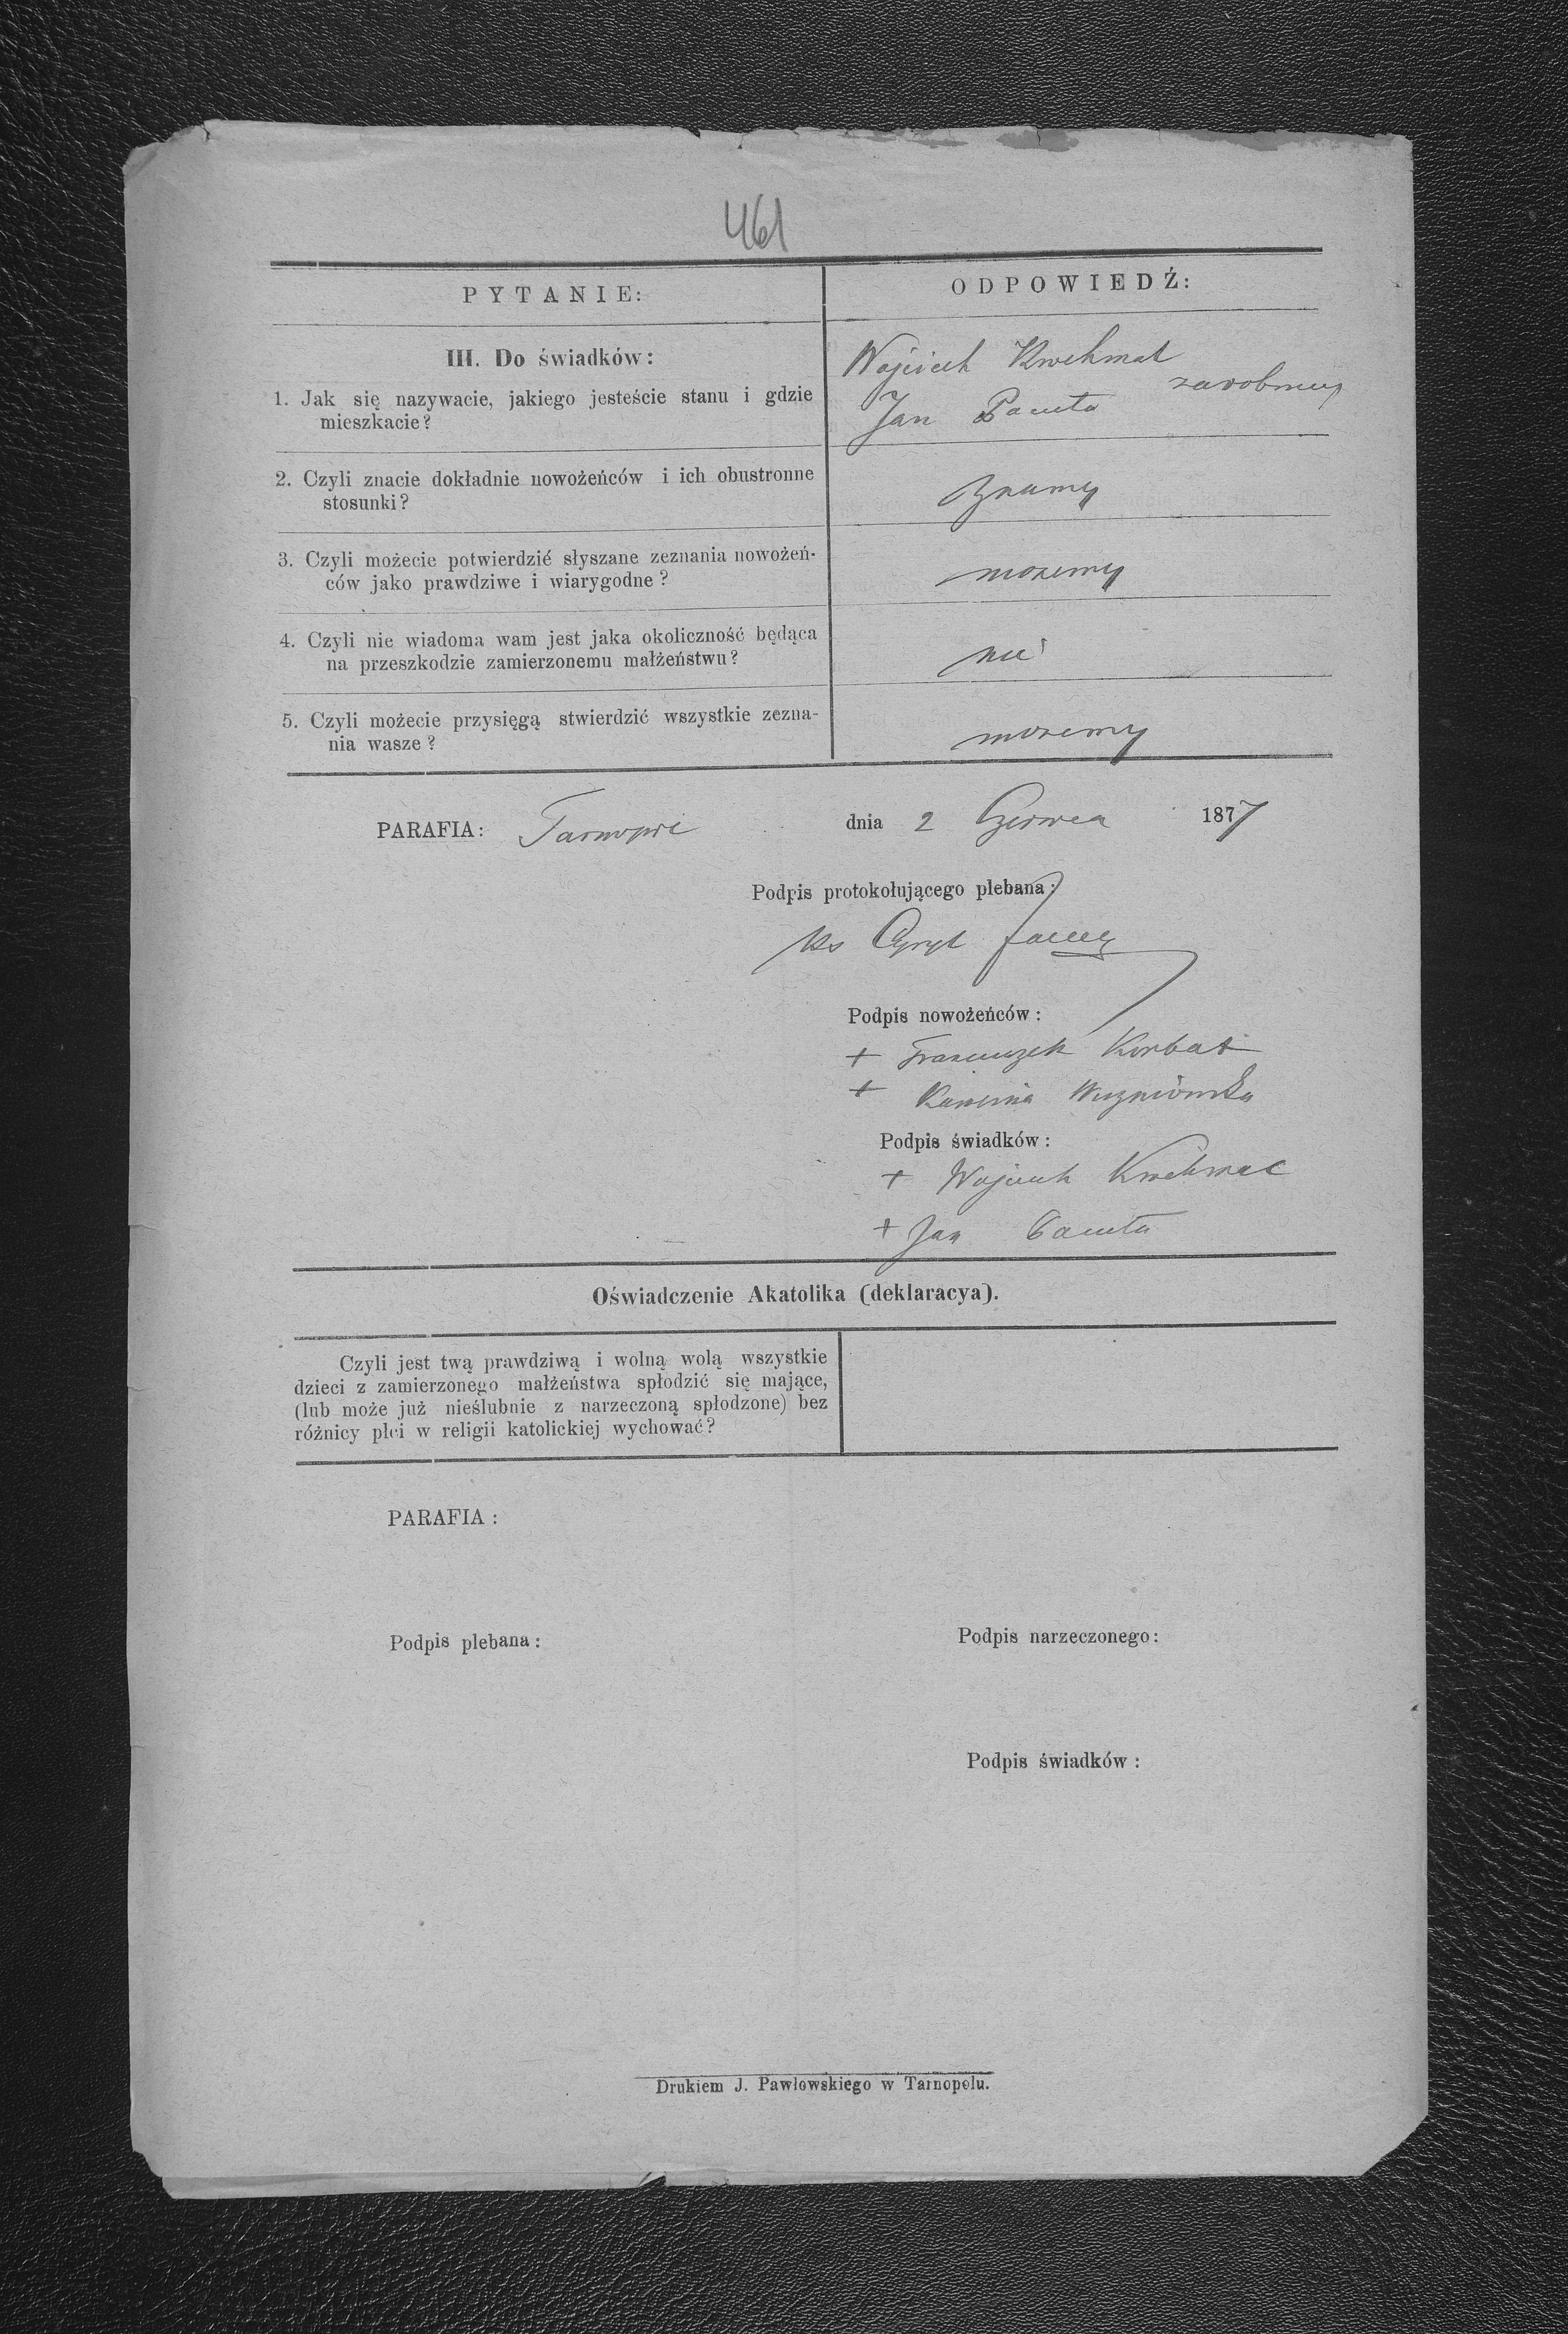 461
PYTANIE:
ODPOWIEDŹ:
III. Do świadków:
1. Jak się nazywacie, jakiego jesteście stanu i gdzie
mieszkacie?
Wojciech
Jan
2. Czyli znacie dokładnie nowożeńców i ich obustronne
stosunki?
znamy
3. Czyli możecie potwierdzić słyszane zeznania nowożeń-
ców jako prawdziwe i wiarygodne?
mozemy
4. Czyli nie wiadoma wam jest jaka okoliczność będąca
na przeszkodzie zamierzonemu małżeństwu?
nie
5. Czyli możecie przysięgą stwierdzić wszystkie zezna-
nia wasze?
mozemy
PARAFIA:
dnia 2 Czerwca 1877
Podpis protokołującego plebana:
Ks Cyryl
Podpis nowożeńców:
+ Franciszek Korbat
+
Podpis świadków:
+ Wojciech
+ Jan
Oświadczenie Akatolika (deklaracya).
Czyli jest twą prawdziwą i wolną wolą wszystkie
dzieci z zamierzonego małżeństwa spłodzić się mające,
(lub może już nieślubnie z narzeczoną spłodzone) bez
różnicy płci w religii katolickiej wychować?
PARAFIA:
Podpis plebana:
Podpis narzeczonego:
Podpis świadków:
Drukiem J. Pawłowskiego w Tarnopolu.